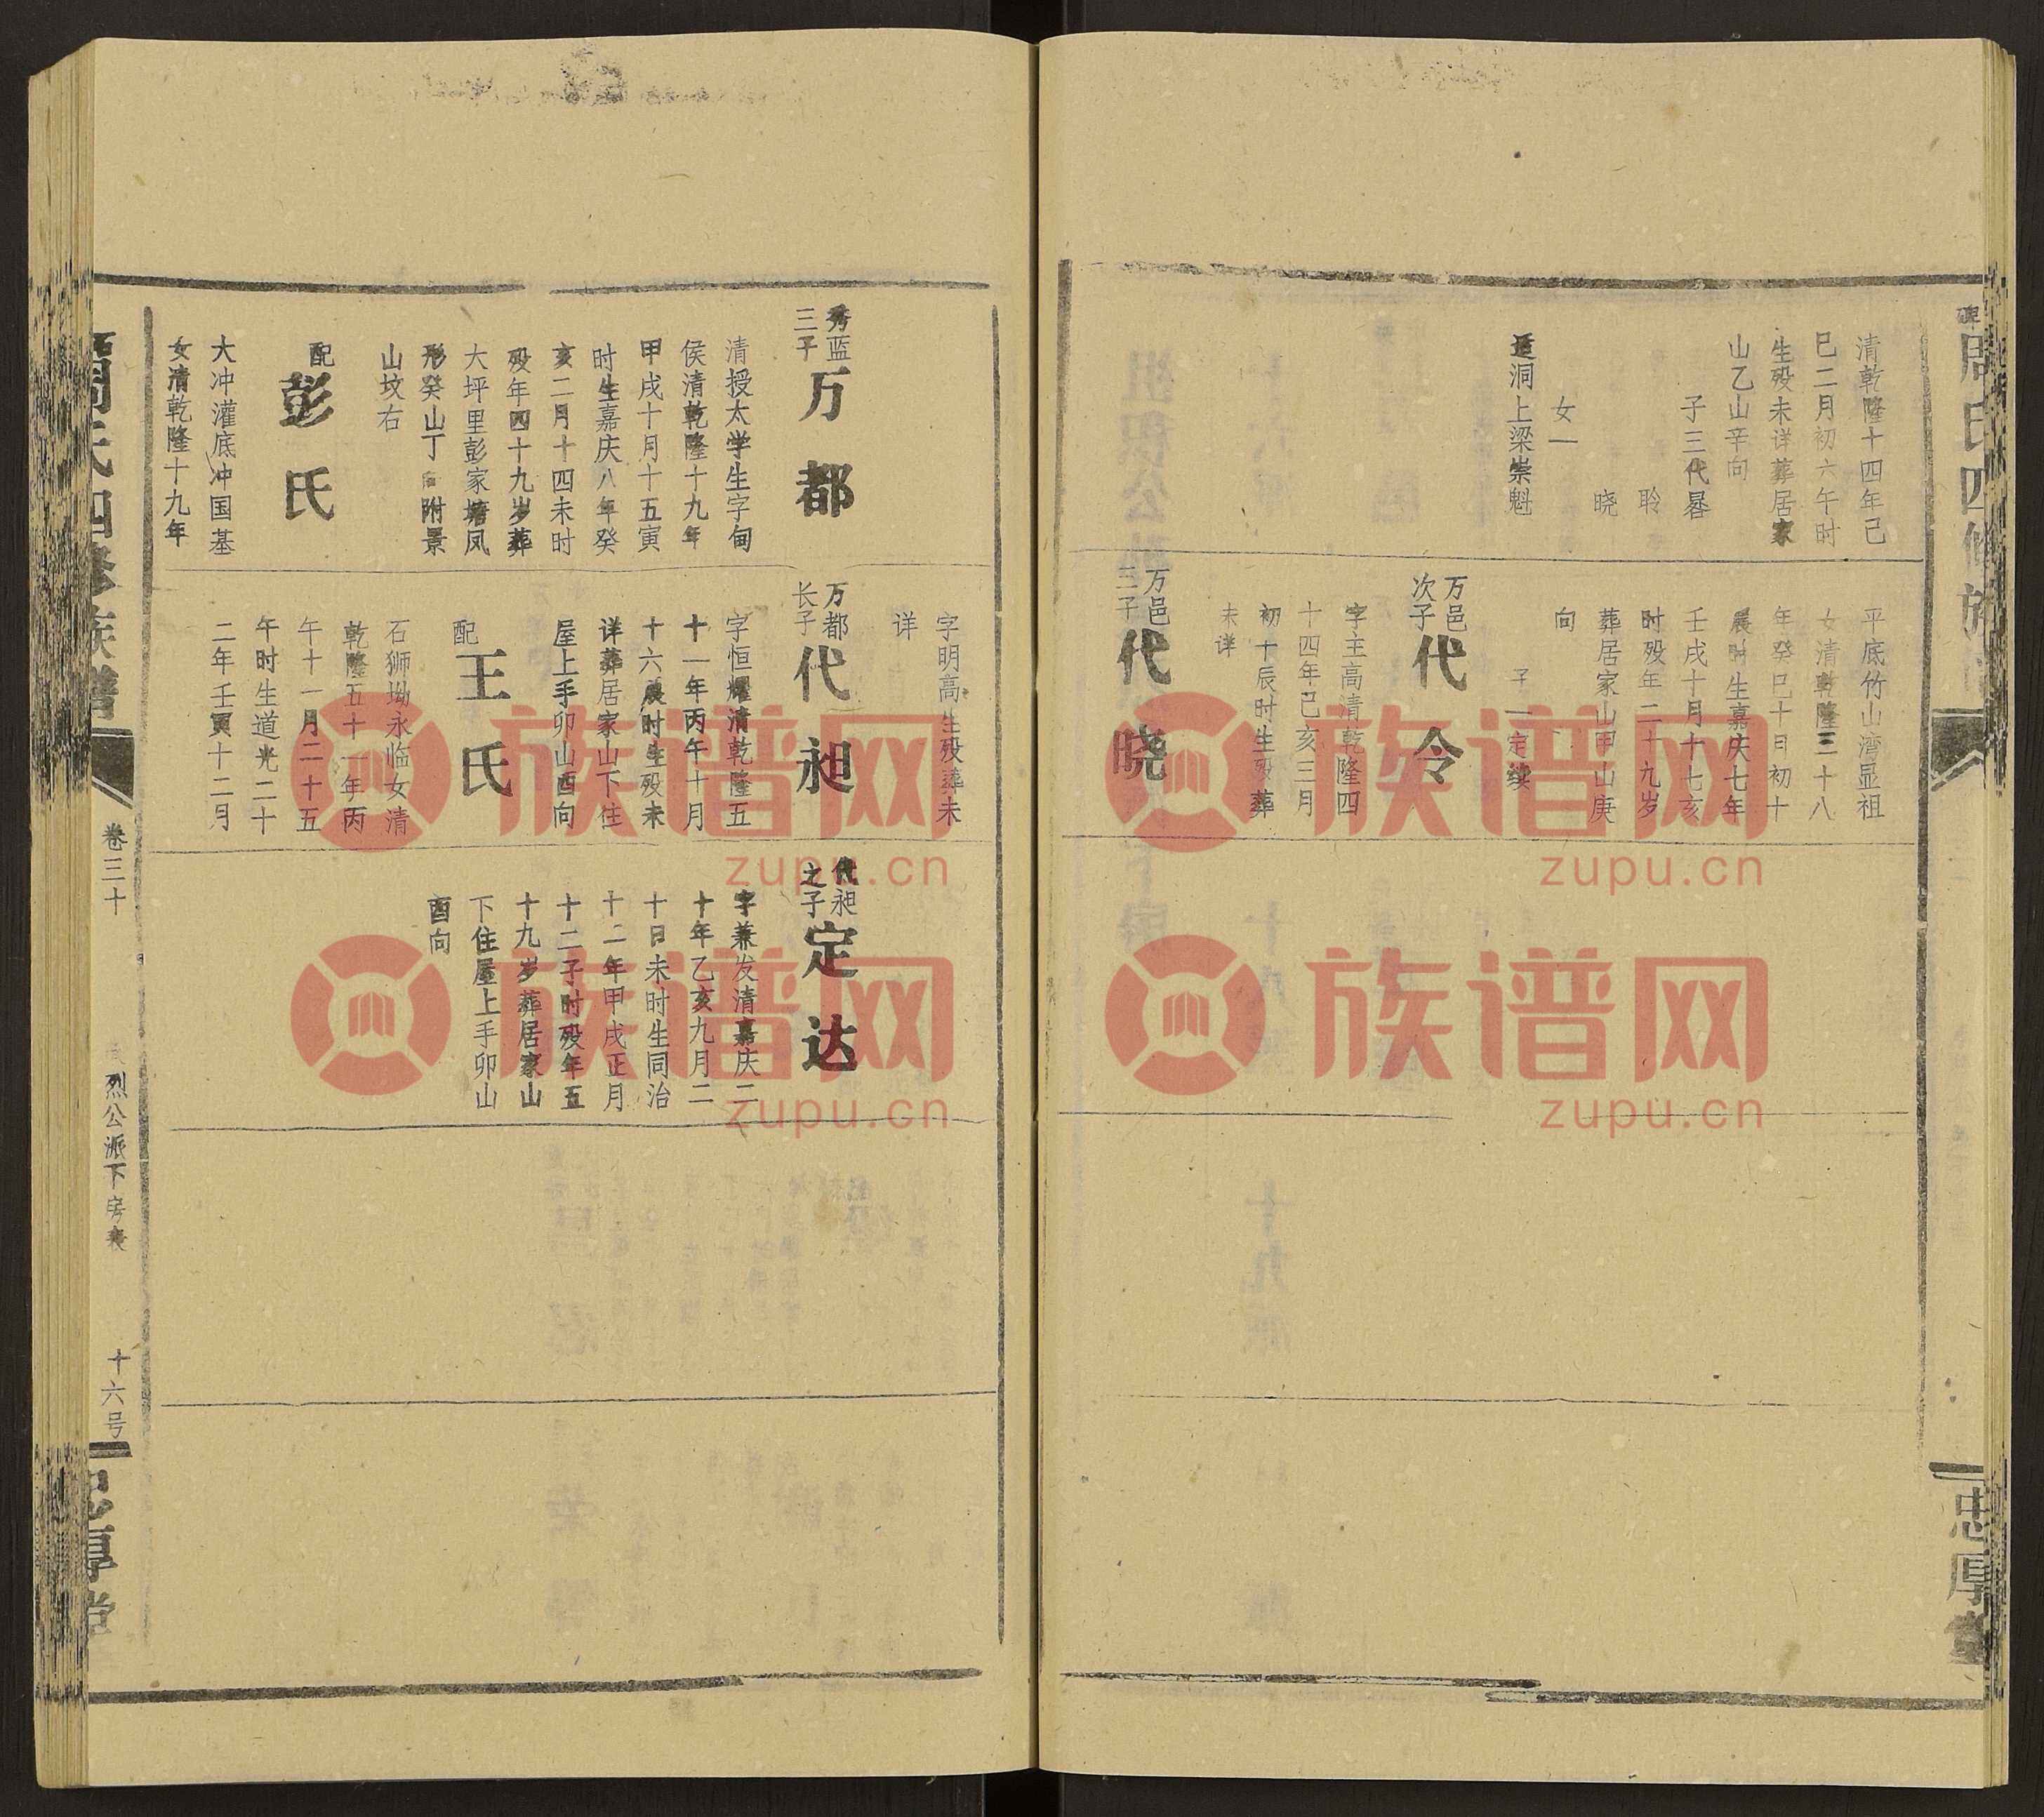 清乾隆十四年己
巳二月初六午时
生殁未详葬居家
山乙山辛向
子三代晷
聆
晓
女一
适洞上梁崇魁
平底竹山湾显祖
女清乾隆三十八
年癸巳十日初十
辰时生嘉庆七年
壬戌十月十七亥
时殁年二十九岁
葬居家山甲山庚
向
子一定续
万邑
次子
代令
字主高清乾隆四
十四年己亥三月
初十辰时生殁葬
未详
万邑
三子
代晓
忠厚堂
秀蓝
三子
万都
清授太学生字甸
侯清乾隆十九年
甲戌十月十五寅
时生嘉庆八年癸
亥二月十四未时
殁年四十九岁葬
大坪里彭家塘凤
形癸山丁向附景
山坟右
配
彭氏
大冲灌底冲国基
女清乾隆十九年
字明高生殁葬未
详
万都
长子
代昶
字恒耀清乾隆五
十一年丙午十月
十六辰时生殁未
详葬居家山下住
屋上手卯山酉向
配
王氏
石狮坳永临女清
乾隆五十一年丙
午十一月二十五
午时生道光二十
二年壬寅十二月
代昶
之子
定达
字兼发清嘉庆二
十年乙亥九月二
十日未时生同治
十二年甲戌正月
十二子时殁年五
十九岁葬居家山
下住屋上手卯山
酉向
氏四修族谱
卷三十
烈公派下房表
十六号
忠厚堂
族谱网
zupu.cn
族谱网
zupu.cn
族谱网
zupu.cn
族谱网
zupu.cn